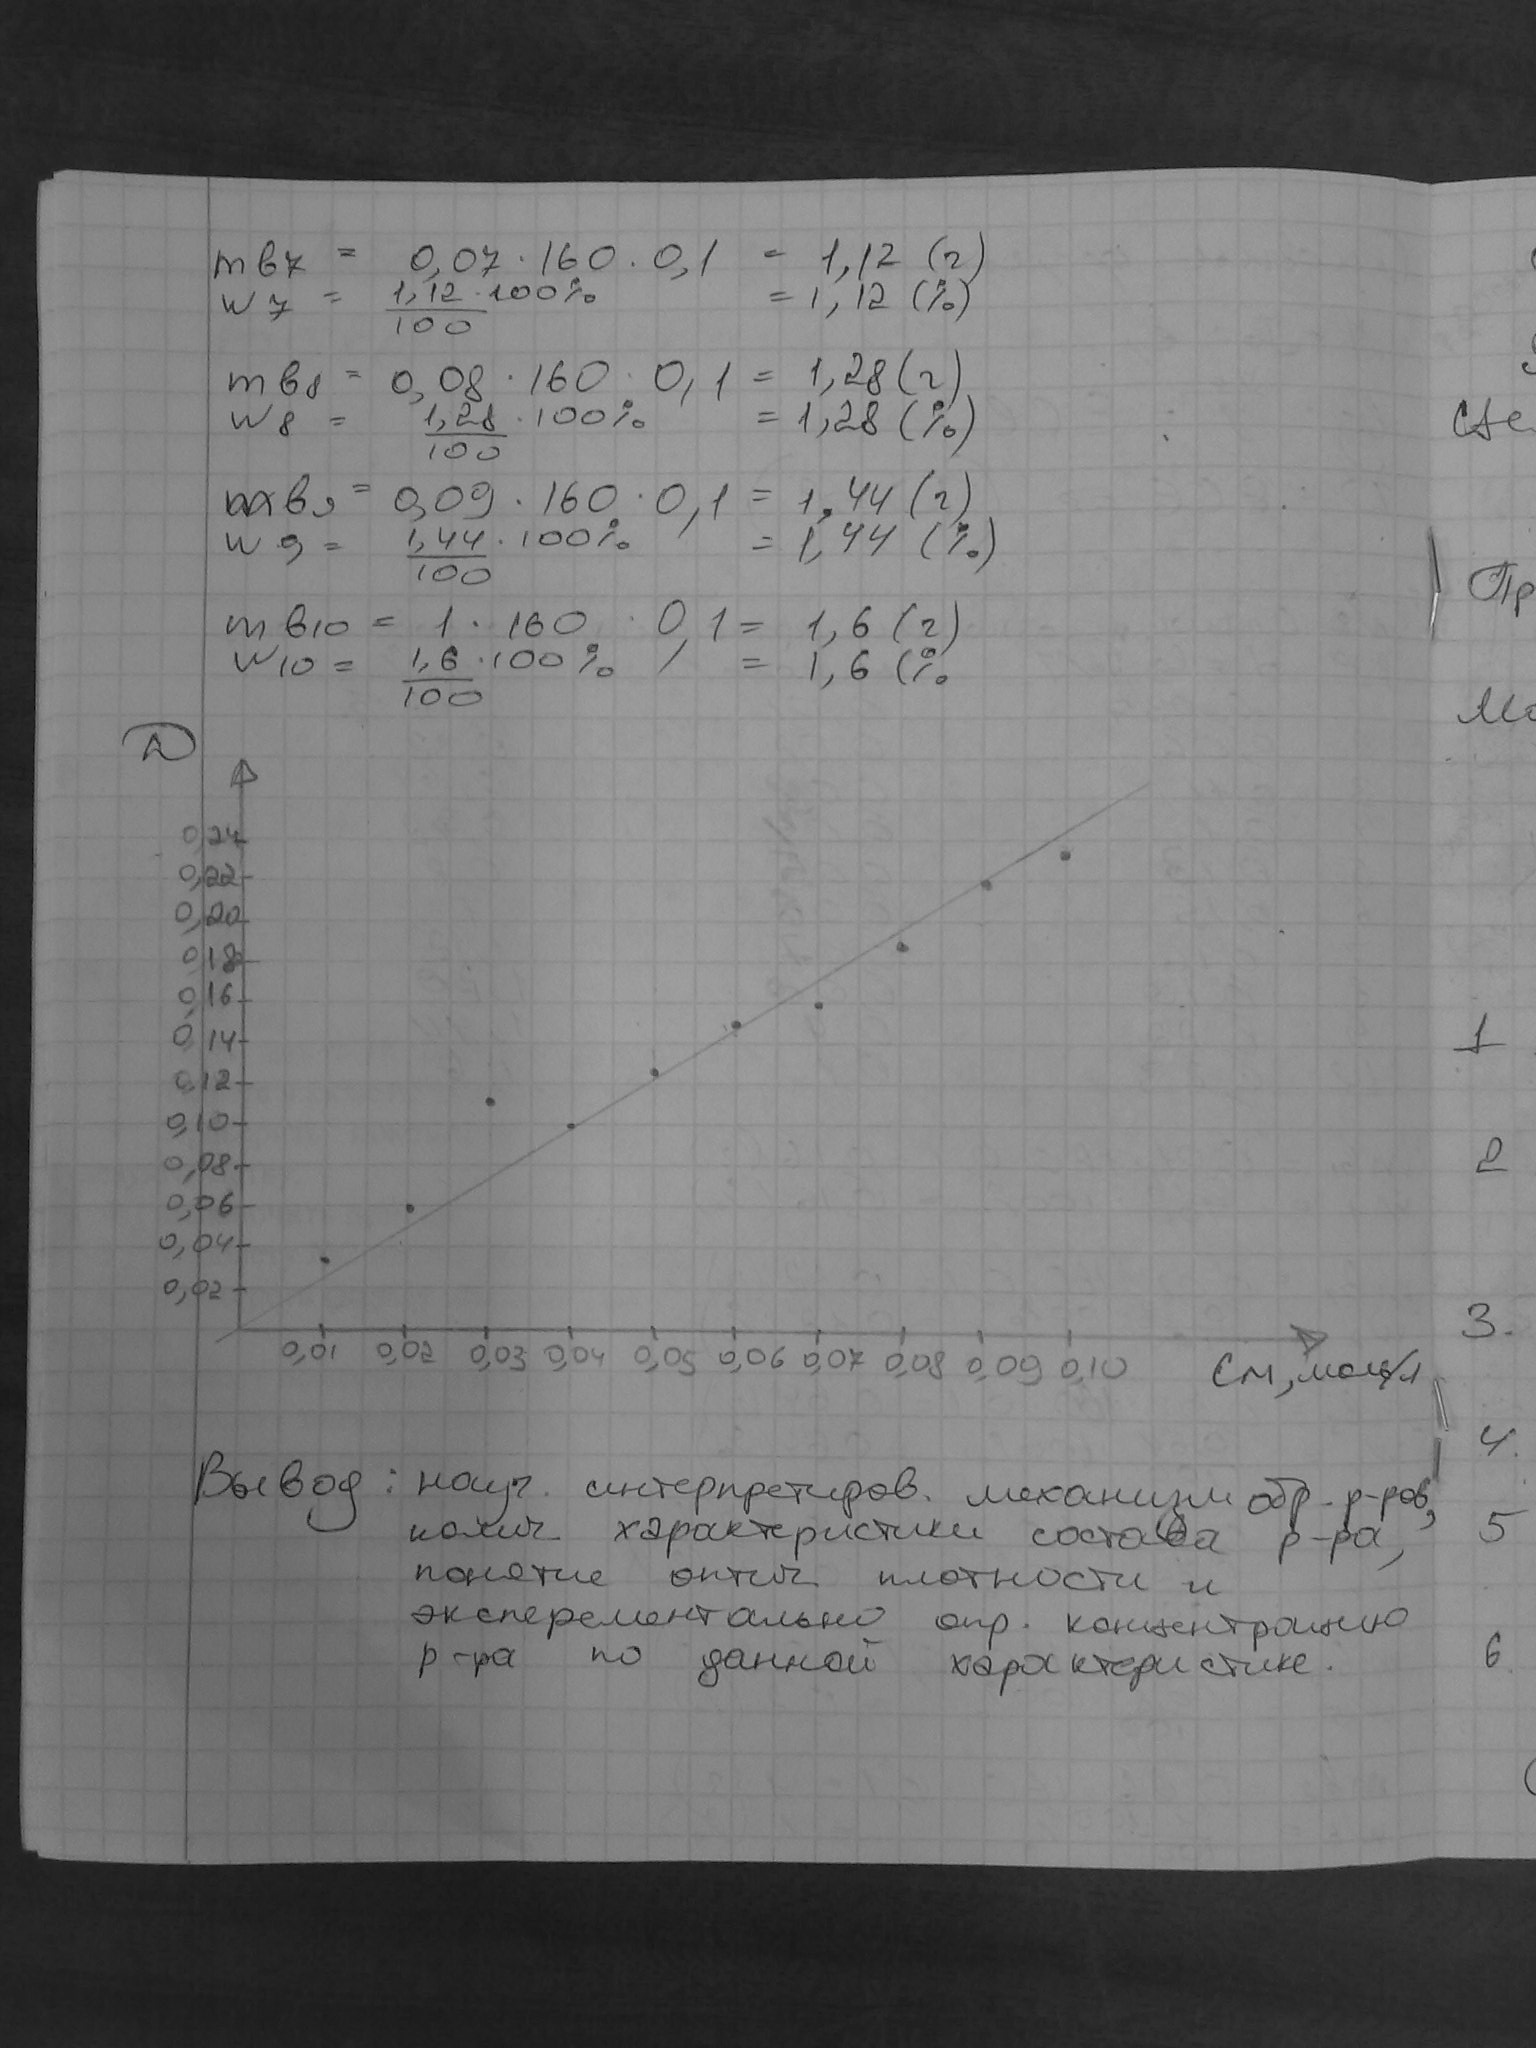 mв7 = 0,07 · 160 · 0,1 = 1,12 (г)
w7 = 1,12/100 · 100% = 1,12 (%)
mв8 = 0,08 · 160 · 0,1 = 1,28 (г)
w8 = 1,28/100 · 100% = 1,28 (%)
mв9 = 0,09 · 160 · 0,1 = 1,44 (г)
w9 = 1,44/100 · 100% = 1,44 (%)
mв10 = 1 · 160 · 0,1 = 1,6 (г)
w10 = 1,6/100 · 100% = 1,6 (%
D
0,24
0,22
0,20
0,18
0,16
0,14
0,12
0,10
0,08
0,06
0,04
0,02
0,01 0,02 0,03 0,04 0,05 0,06 0,07 0,08 0,09 0,10 См, моль/л
Вывод: науч. интерпретиров. механизм обр. р-ров,
колич. характеристики состава р-ра,
понятие оптич. плотности и
эксперементально опр. концентрацию
р-ра по данной характеристике.
Пр
1
2
3.
4.
5
6